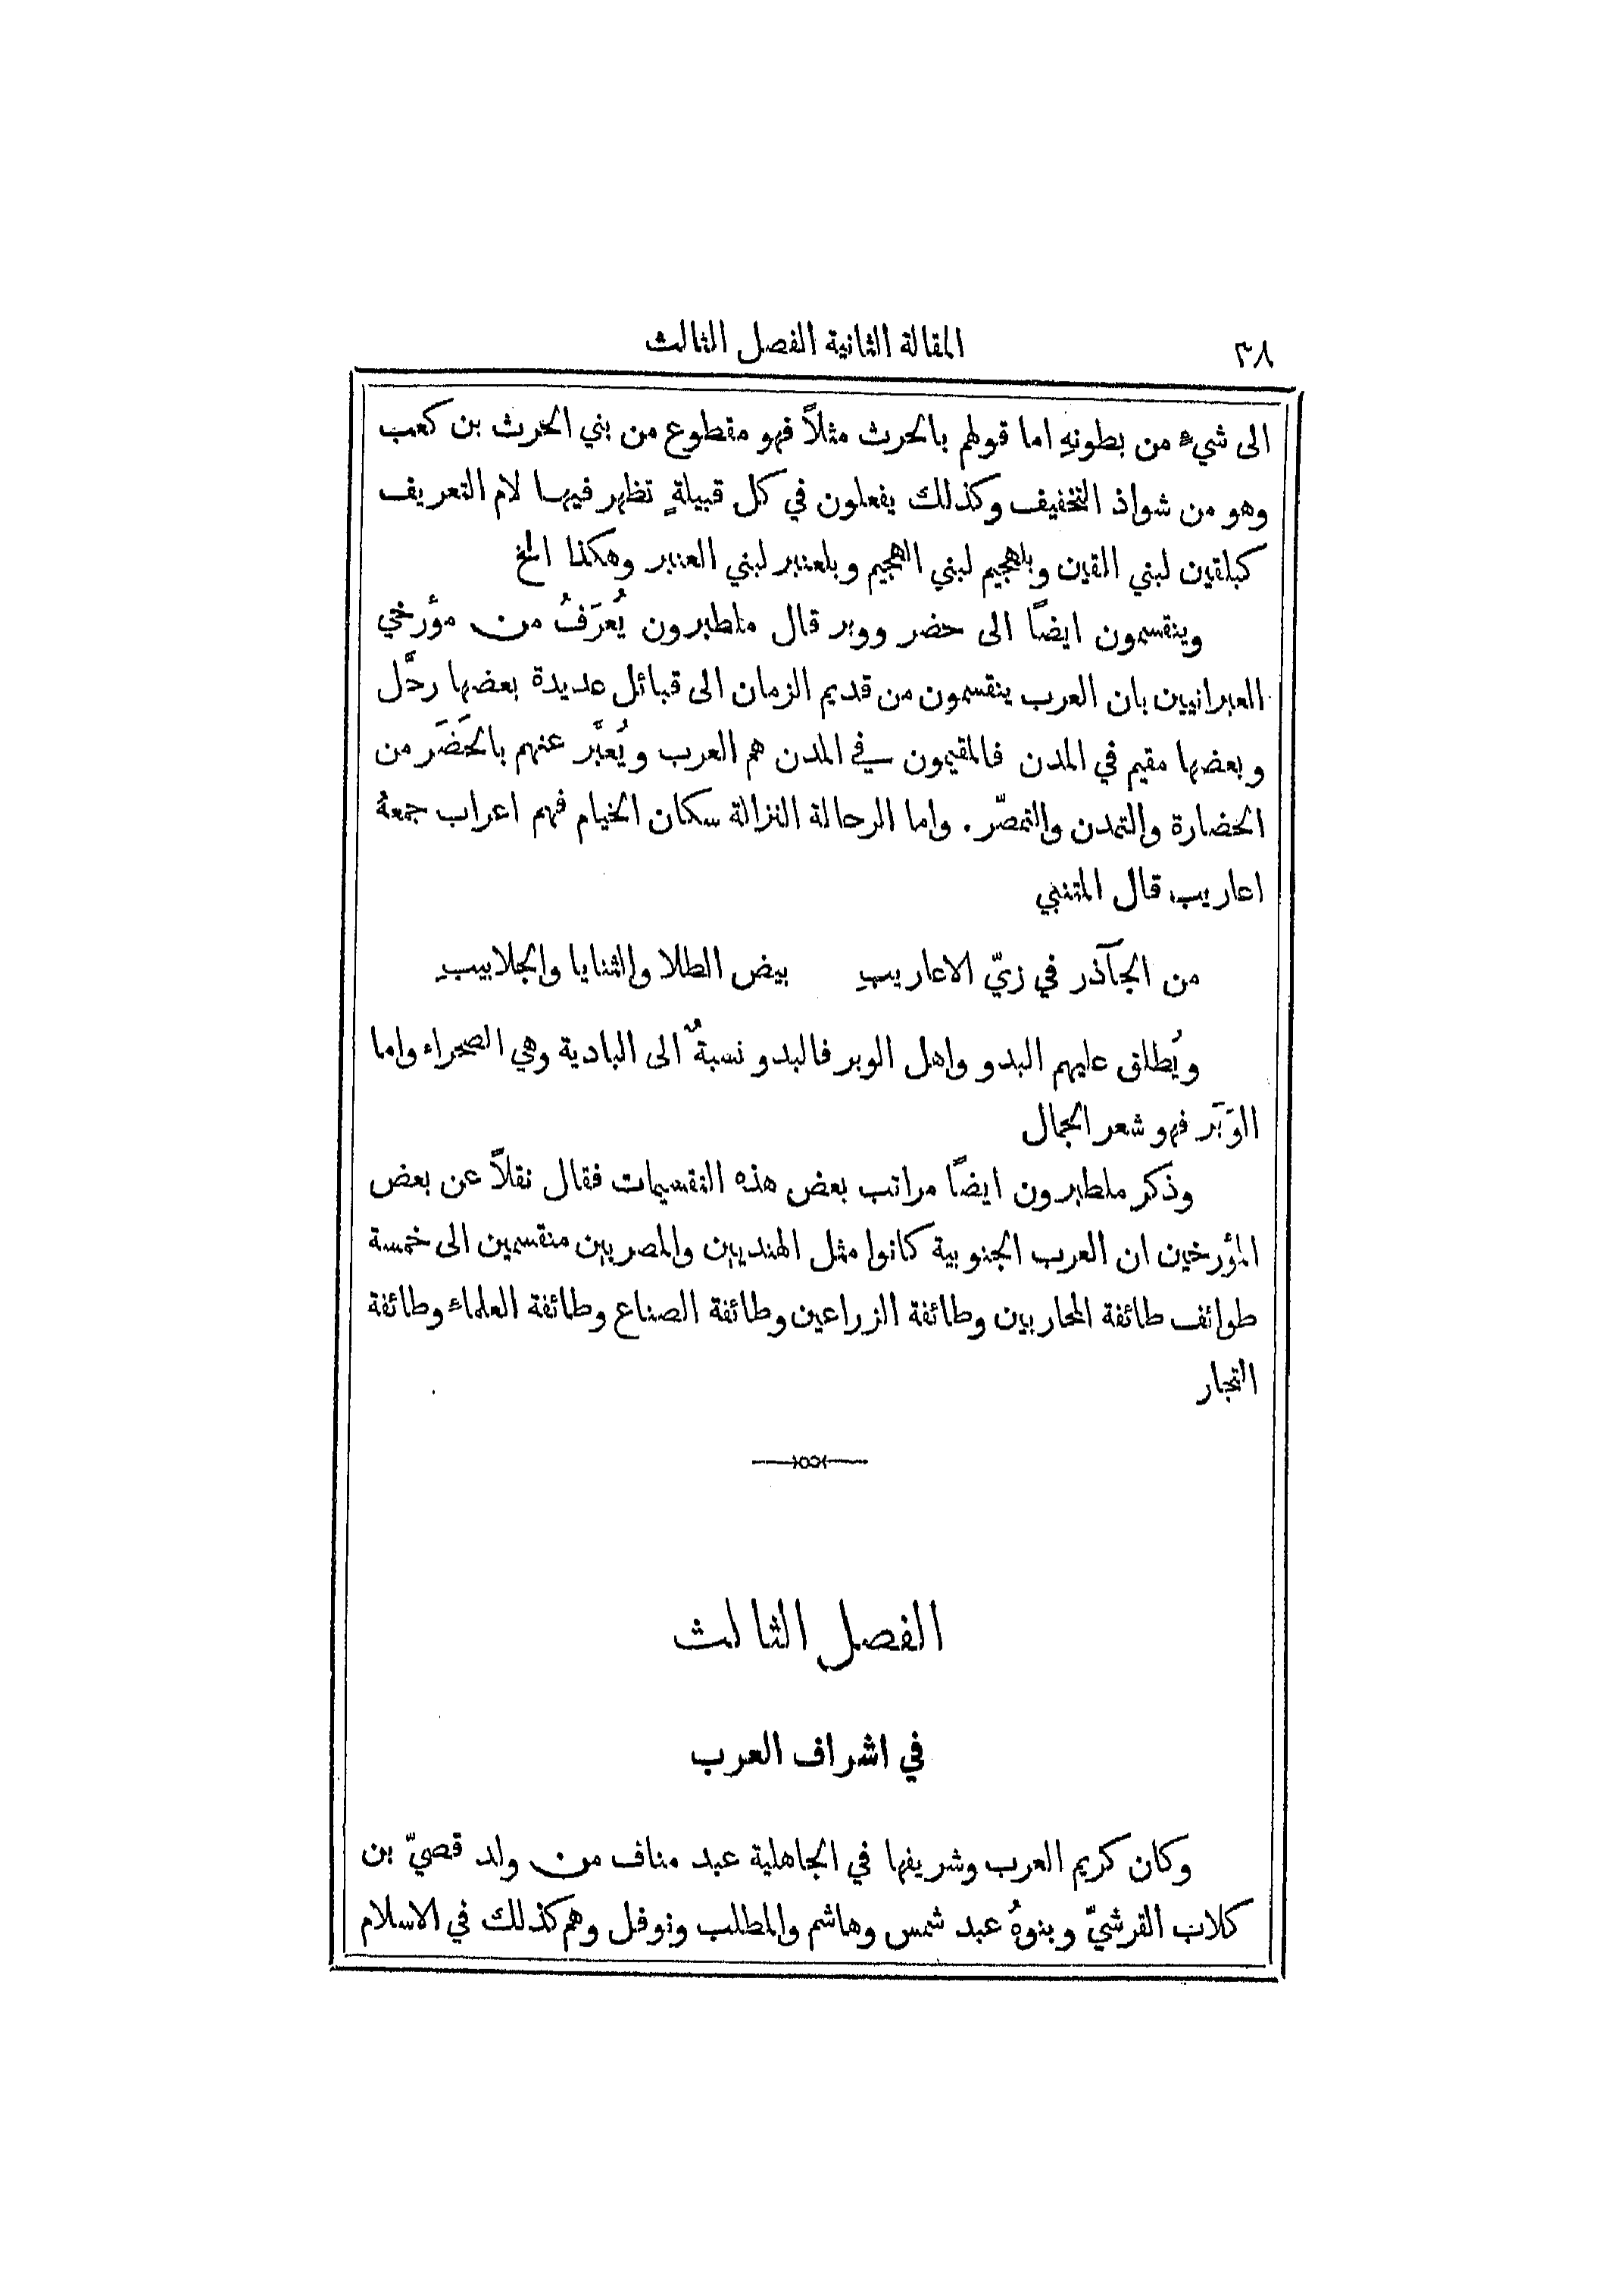 ٣٨ المقالة الثانية الفصل الثالث
الى شيءٍ من بطونهِ اما قولهم بالحرث مثلاً فهو مقطوع من بني الحرث بن كعب
وهو من شواذ التخفيف وكذلك يفعلون في كل قبيلةٍ تظهر فيها لام التعريف
كبلقين لبني القين وبلهجيم لبني الهجيم وبلعنبر لبني العنبر وهكذا الخ
وينقسمون ايضًا الى حضر ووبر قال ملطبرون يُعرَفُ من مؤرخي
العبرانيين بان العرب ينقسمون من قديم الزمان الى قبائل عديدة بعضها رحَّل
وبعضها مقيم في المدن فالمقيمون في المدن هم العرب ويُعبَّر عنهم بالحَضَر من
الحضارة والتمدن والتمصّر . واما الرحالة النزالة سكان الخيام فهم اعراب جمعهُ
اعاريب قال المتنبي
من الجآذر في زيّ الاعاريبِ بيض الطلا والثنايا والجلابيبِ
ويُطلق عليهم البدو واهل الوبر فالبدو نسبةٌ الى البادية وهي الصحراء واما
الوَبَر فهو شعر الجمال
وذكر ملطبرون ايضًا مراتب بعض هذه التقسيمات فقال نقلاً عن بعض
المؤرخين ان العرب الجنوبية كانوا مثل الهنديين والمصريين منقسمين الى خمسة
طوائف طائفة المحاربين وطائفة الزراعين وطائفة الصناع وطائفة العلماء وطائفة
التجار
الفصل الثالث
في اشراف العرب
وكان كريم العرب وشريفها في الجاهلية عبد مناف من ولد قصيّ بن
كلاب القرشيّ وبنوهُ عبد شمس وهاشم والمطلب ونوفل وهم كذلك في الاسلام